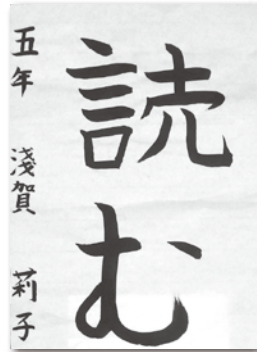 読む
五年 淺賀 莉子